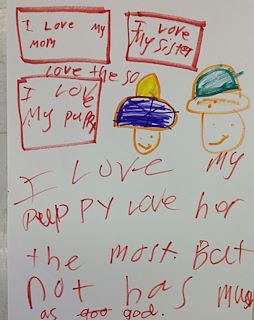 I Love My
mom
I Love
My sister
Love the so
I Love
My pupp
I Love My
puppy Love her
the most. But
not has mus
as goo god.